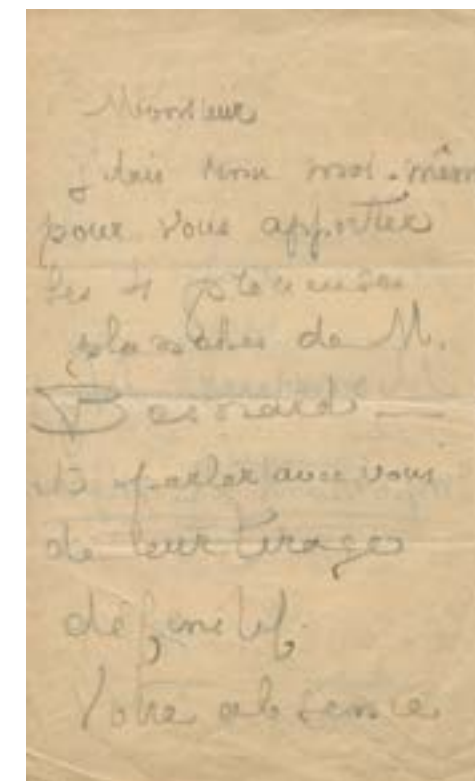 Monsieur
j'étais venu moi-même
pour vous apporter
les 4 précieuses
planches de M.
Besnard —
et parler avec vous
de leur tirage
définitif.
Votre absence